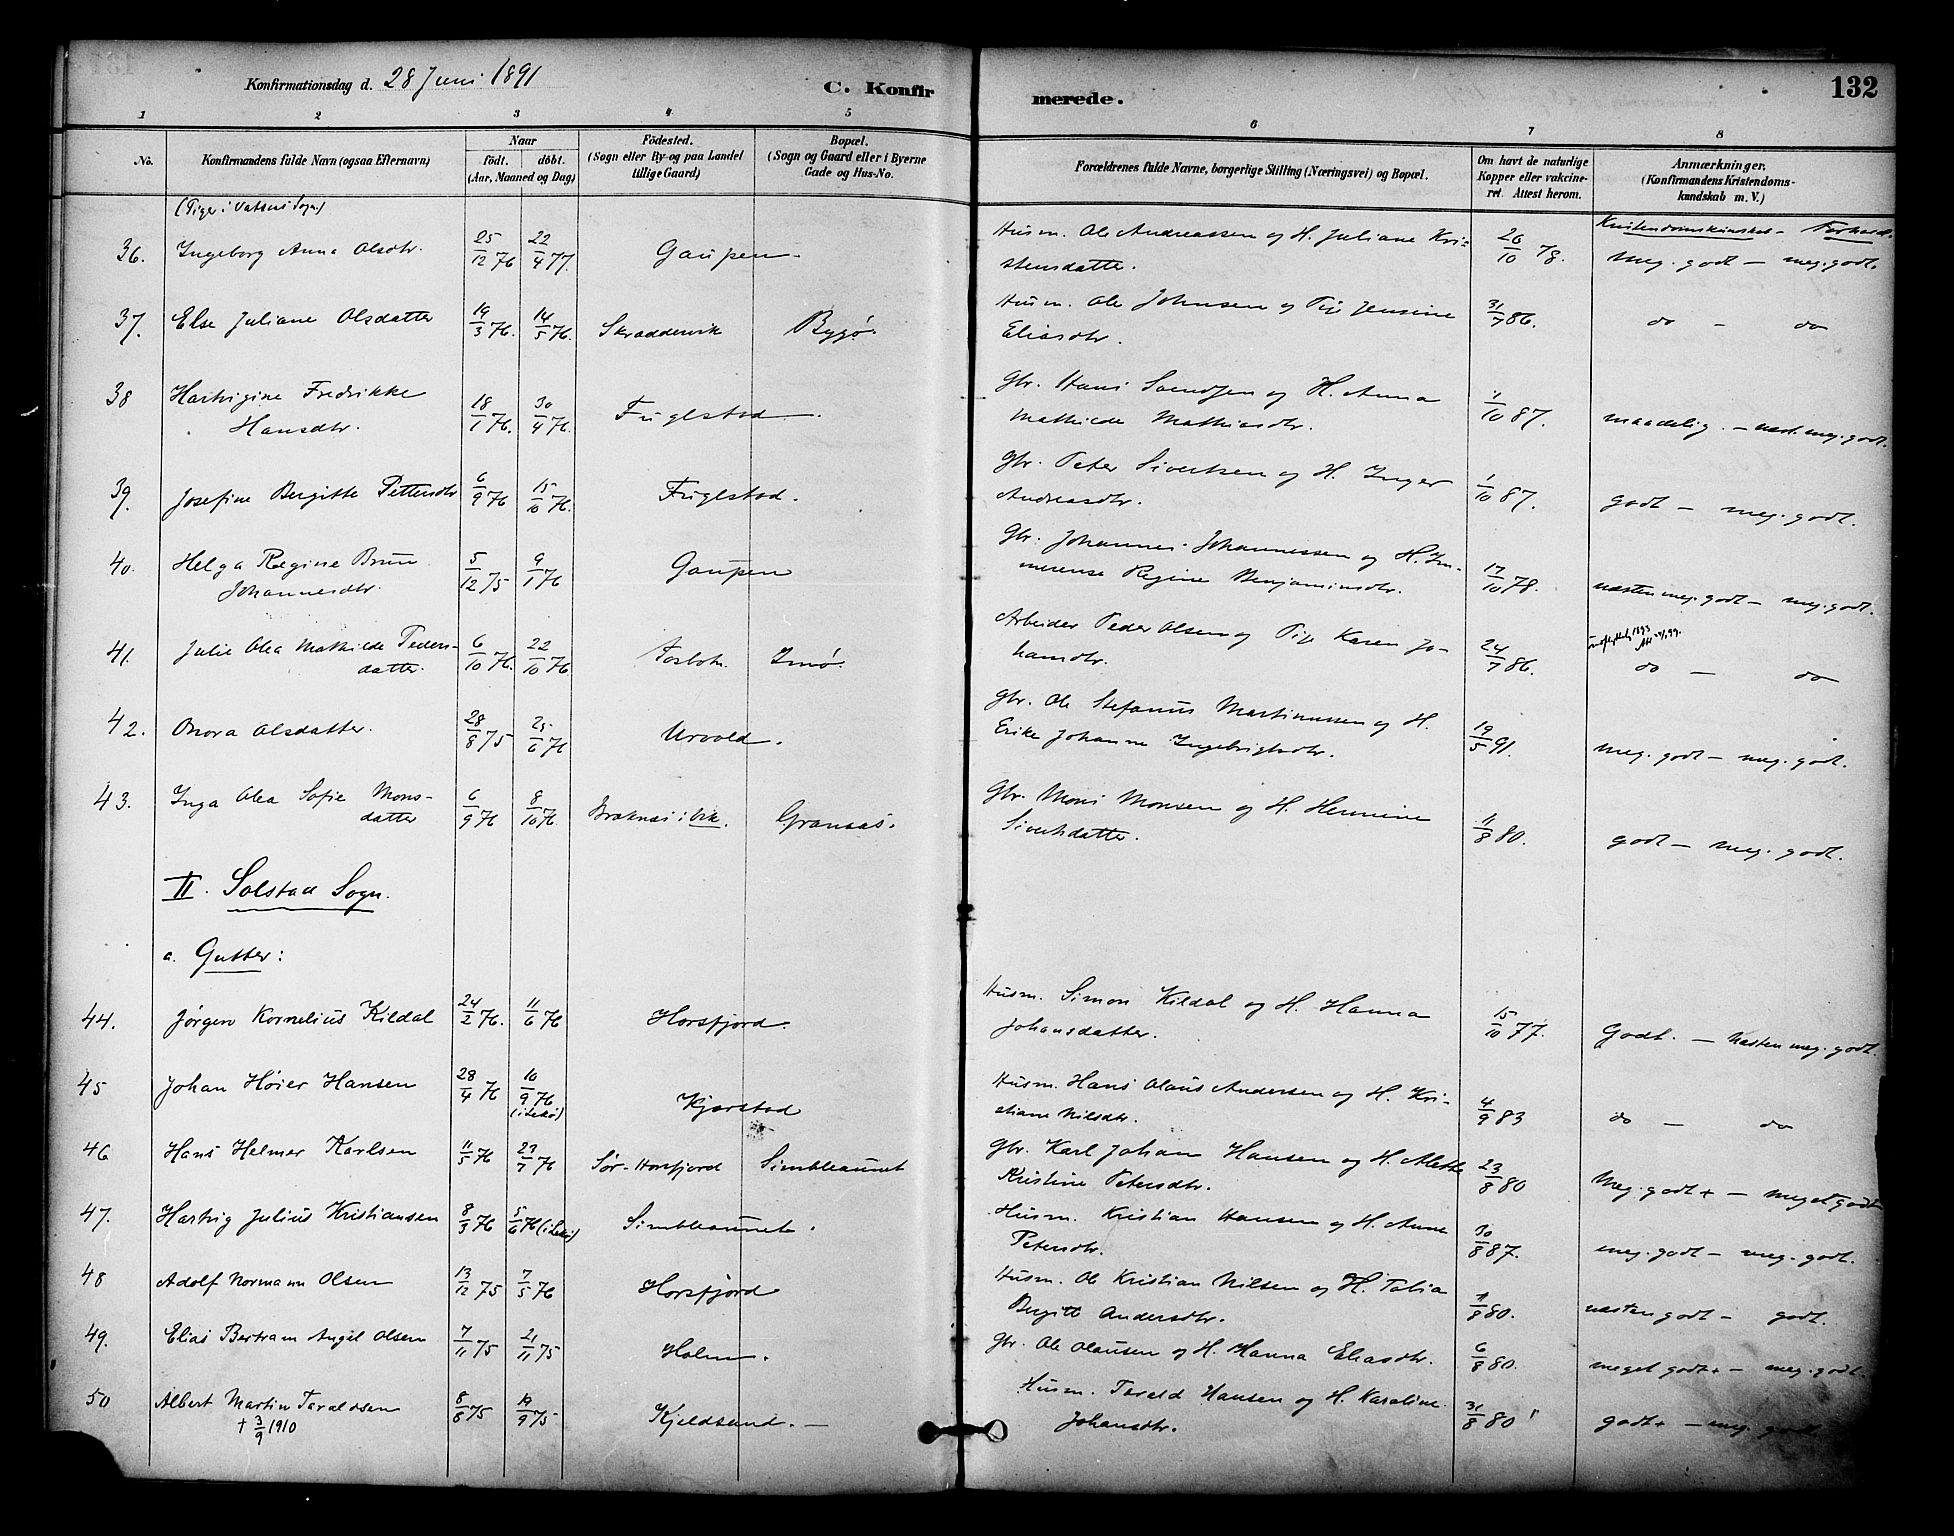 Konfirmationsdag d. 28 Juni 1891
C. Konfirmerede.
132
1 2 3 4 5 6 7 8
No.
Konfirmandens fulde Navn (ogsaa Efternavn)
Naar
födt. döbt.
(Aar, Maaned og Dag)
Födested.
(Sogn eller By- og paa Landet
tillige Gaard)
Bopæl.
(Sogn og Gaard eller i Byerne
Gade og Hus-No.
Forældrenes fulde Navne, borgerlige Stilling (Næringsvei) og Bopæl.
Om havt de naturlige
Kopper eller vakcine-
ret. Attest herom.
Anmærkninger.
(Konfirmandens Kristendoms-
kundskab m. V.)
(Piger i Sogn)
Kristendomskundskab – Forhold.
36. Ingeborg Anna Olsdtr. 25/12 76 22/4 77. Gaupen – Husm. Ole Andreassen og H. Juliane Kri- 26/10 78. meg. godt – meg. godt.
stensdatter.
37. Else Juliane Olsdatter 19/3 76. 14/5 76. Skraddervik Bygö. Husm. Ole Johnsen og Pige Jensine 31/7 86. do – do
Eliasdtr.
38 Hartvigine Fredrikke 18/1 76. 30/4 76. Fuglstad. Gbr. Hans Svendsen og H. Anna 1/10 87. maadelig. – næst. meg. godt.
Hansdtr. Mathilde Mathiasdtr.
39. Josefine Bergitte Pettersdtr 6/9 76 15/10 76. Fuglstad. Gbr. Peter Sivertsen og H. Inger 1/10 87. godt – meg. godt.
Andreasdtr.
40. Helga Regine Brun 5/12 75 9/1 76 Gaupen Gbr. Johannes Johannessen og H. Im- 17/10 78. næsten meg. godt – meg. godt.
Johannesdtr. merense Regine Benjaminsdtr.
41. Julie Olea Mathilde Peders- 6/10 76. 22/10 76 Imö. Arbeider Peder Olsen og Pige Karen Jo- 24/7 86. do – do
datter. hansdtr.
42. Olsdatter. 28/8 75 25/6 76 Urvold. Gbr. Ole Stefanus Martinussen og H. 19/5 91. meg. godt – meg. godt.
Erike Johanne Ingebrigtsdtr.
43. Inga Olea Sofie Mons- 6/9 76 8/10 76. Gransas. Gbr. Mons Monsen og H. Hermine 11/8 80. godt – meg. godt.
datter Sivertsdatter.
II. Solstad Sogn.
a. Gutter:
44. Jørgen Kornelius Kildal 24/2 76. 11/6 76 Horsfjord. Husm. Simon Kildal og H. Hanna 15/10 77. Godt. – Næsten meg. godt.
Johansdatter.
45 Johan Høier Hansen 28/4 76 10/9 76 Kjærstad Husm. Hans Olaus Andersen og H. Kri- 4/9 83 do – do
(i Lekø) stiane Nilsdtr.
46 Hans Helmer Karlsen 11/5 76 23/7 76 Sør-Horsfjord Simbleaunet Gbr. Karl Johan Hansen og H. Alette 23/8 80 Meg. godt + – meget godt
Kristine Petersdtr.
47. Hartvig Julius Kristiansen 8/3 76 5/6 76 (i Lekø) Simbleaunet. Husm. Kristian Hansen og H. Anne 30/8 87. meg. godt – meg. godt.
Petersdtr.
48 Adolf Normann Olsen 13/12 75 7/5 76 Horsfjord Husm. Ole Kristian Nilsen og H. Talia 11/8 80. næsten godt – godt.
Bergitte Andersdtr.
49. Elias Bertram Angel Olsen 7/11 75 21/11 75 Holm. Gbr. Ole Olausen og H. Hanna Eliasdtr. 6/8 80. meget godt + – meg. godt.
50 Albert Martin Taraldsen 8/8 75 19/9 75 Kjeldsund. – Husm. Tarald Hansen og H. Karoline 31/8 80 godt + – meg. godt
+ 3/9 1910 Johansdtr.